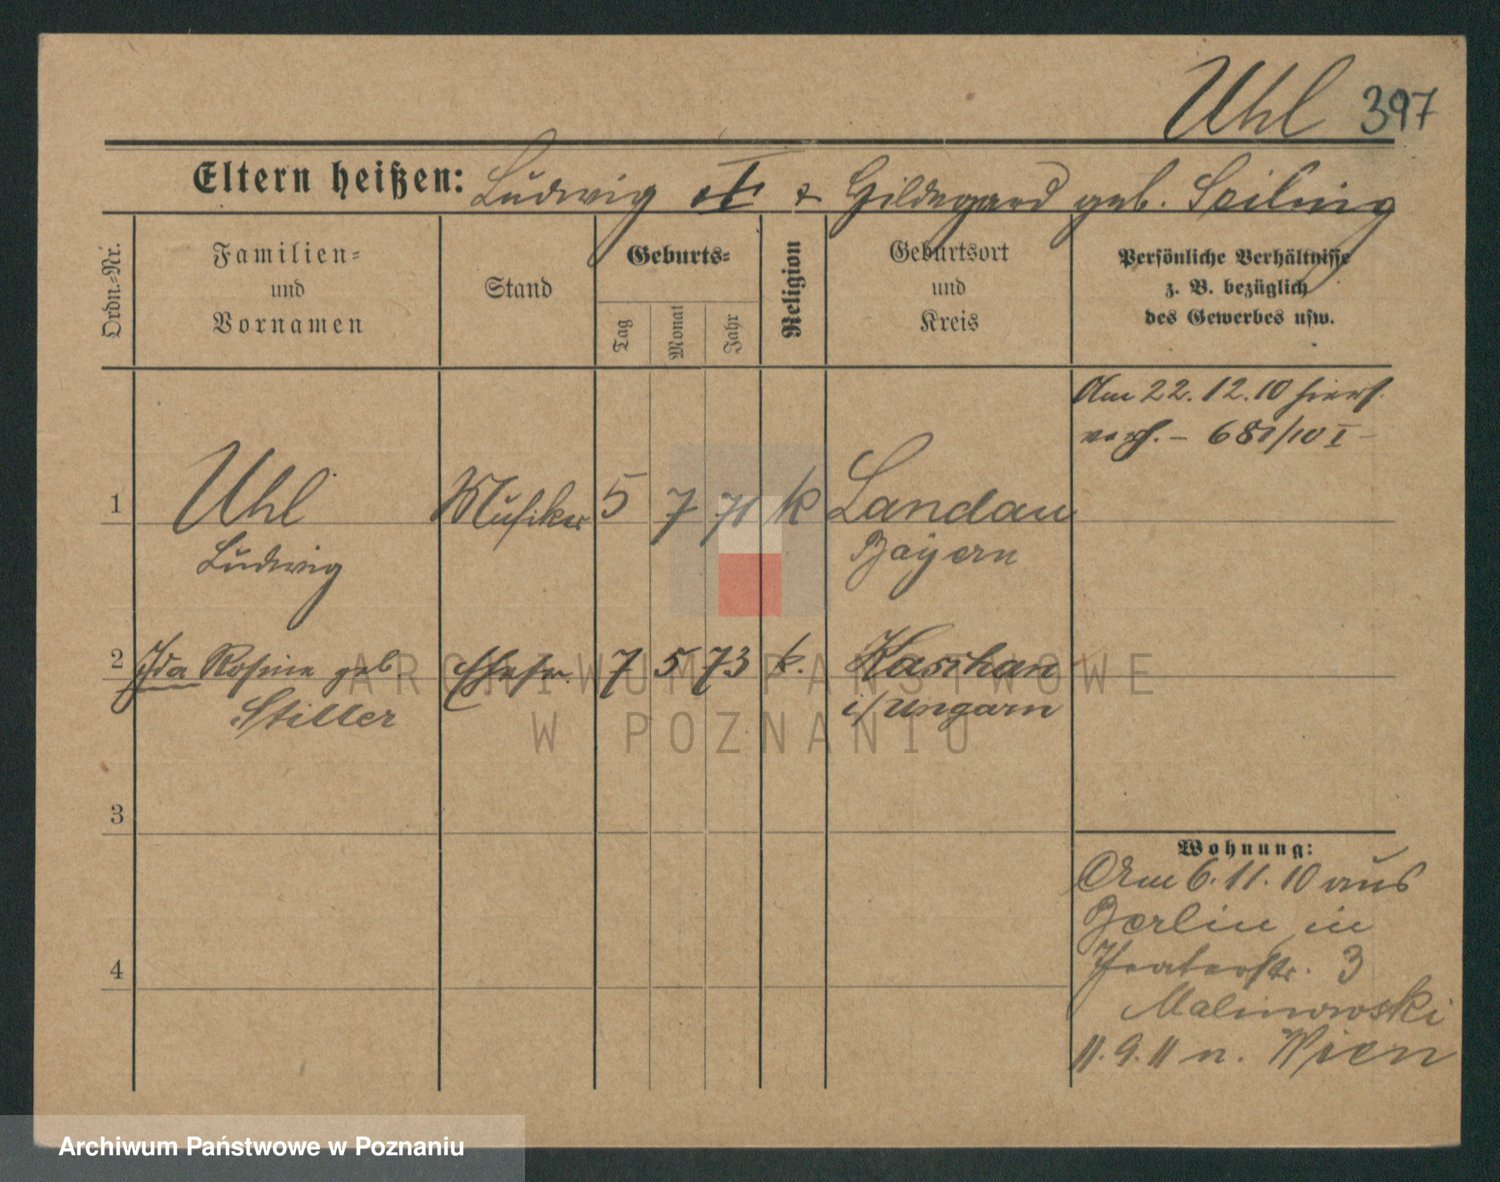 Uhl 397
Eltern heißen: Ludwig & Hildegard geb. Seiling
Ordn.-Nr.
Familien- und Vornamen
Stand
Geburts-
Tag
Monat
Jahr
Religion
Geburtsort und Kreis
Persönliche Verhältnisse
z. B. bezüglich
des Gewerbes usw.
Am 22.12.10 hiers.
verh. – 681/10 I –
1 Uhl Musiker 5 7 71 k Landau
Ludwig Bayern
2 Ida Rosine geb. Ehefr. 7 5 73 k. Kaschau
Stiller i/Ungarn
3
4
Wohnung:
Am 6.11.10 aus
Berlin in
Theaterstr. 3
Malinowski
11.9.11 n. Wien
ARCHIWUM PAŃSTWOWE
W POZNANIU
Archiwum Państwowe w Poznaniu